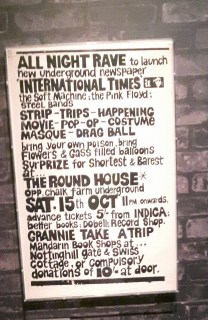 ALL NIGHT RAVE to launch
new underground newspaper
'INTERNATIONAL TIMES
the Soft Machine; the Pink Floyd;
Steel Bands
STRIP - TRIPS - HAPPENING
MOVIE - POP - OP - COSTUME
MASQUE - DRAG BALL
bring your own poison, bring
Flowers & Gass filled balloons
SurPRIZE for Shortest & Barest
at...
THE ROUND HOUSE*
opp. chalk farm underground
SAT. 15th OCT 11 PM onwards.
advance tickets 5/- from INDICA;
better books; Dobell: Record Shop.
GRANNIE TAKE A TRIP
Mandarin Book Shops at...
Nottinghill gate & SWISS
Cottage. or compulsory
donations of 10/- at door.